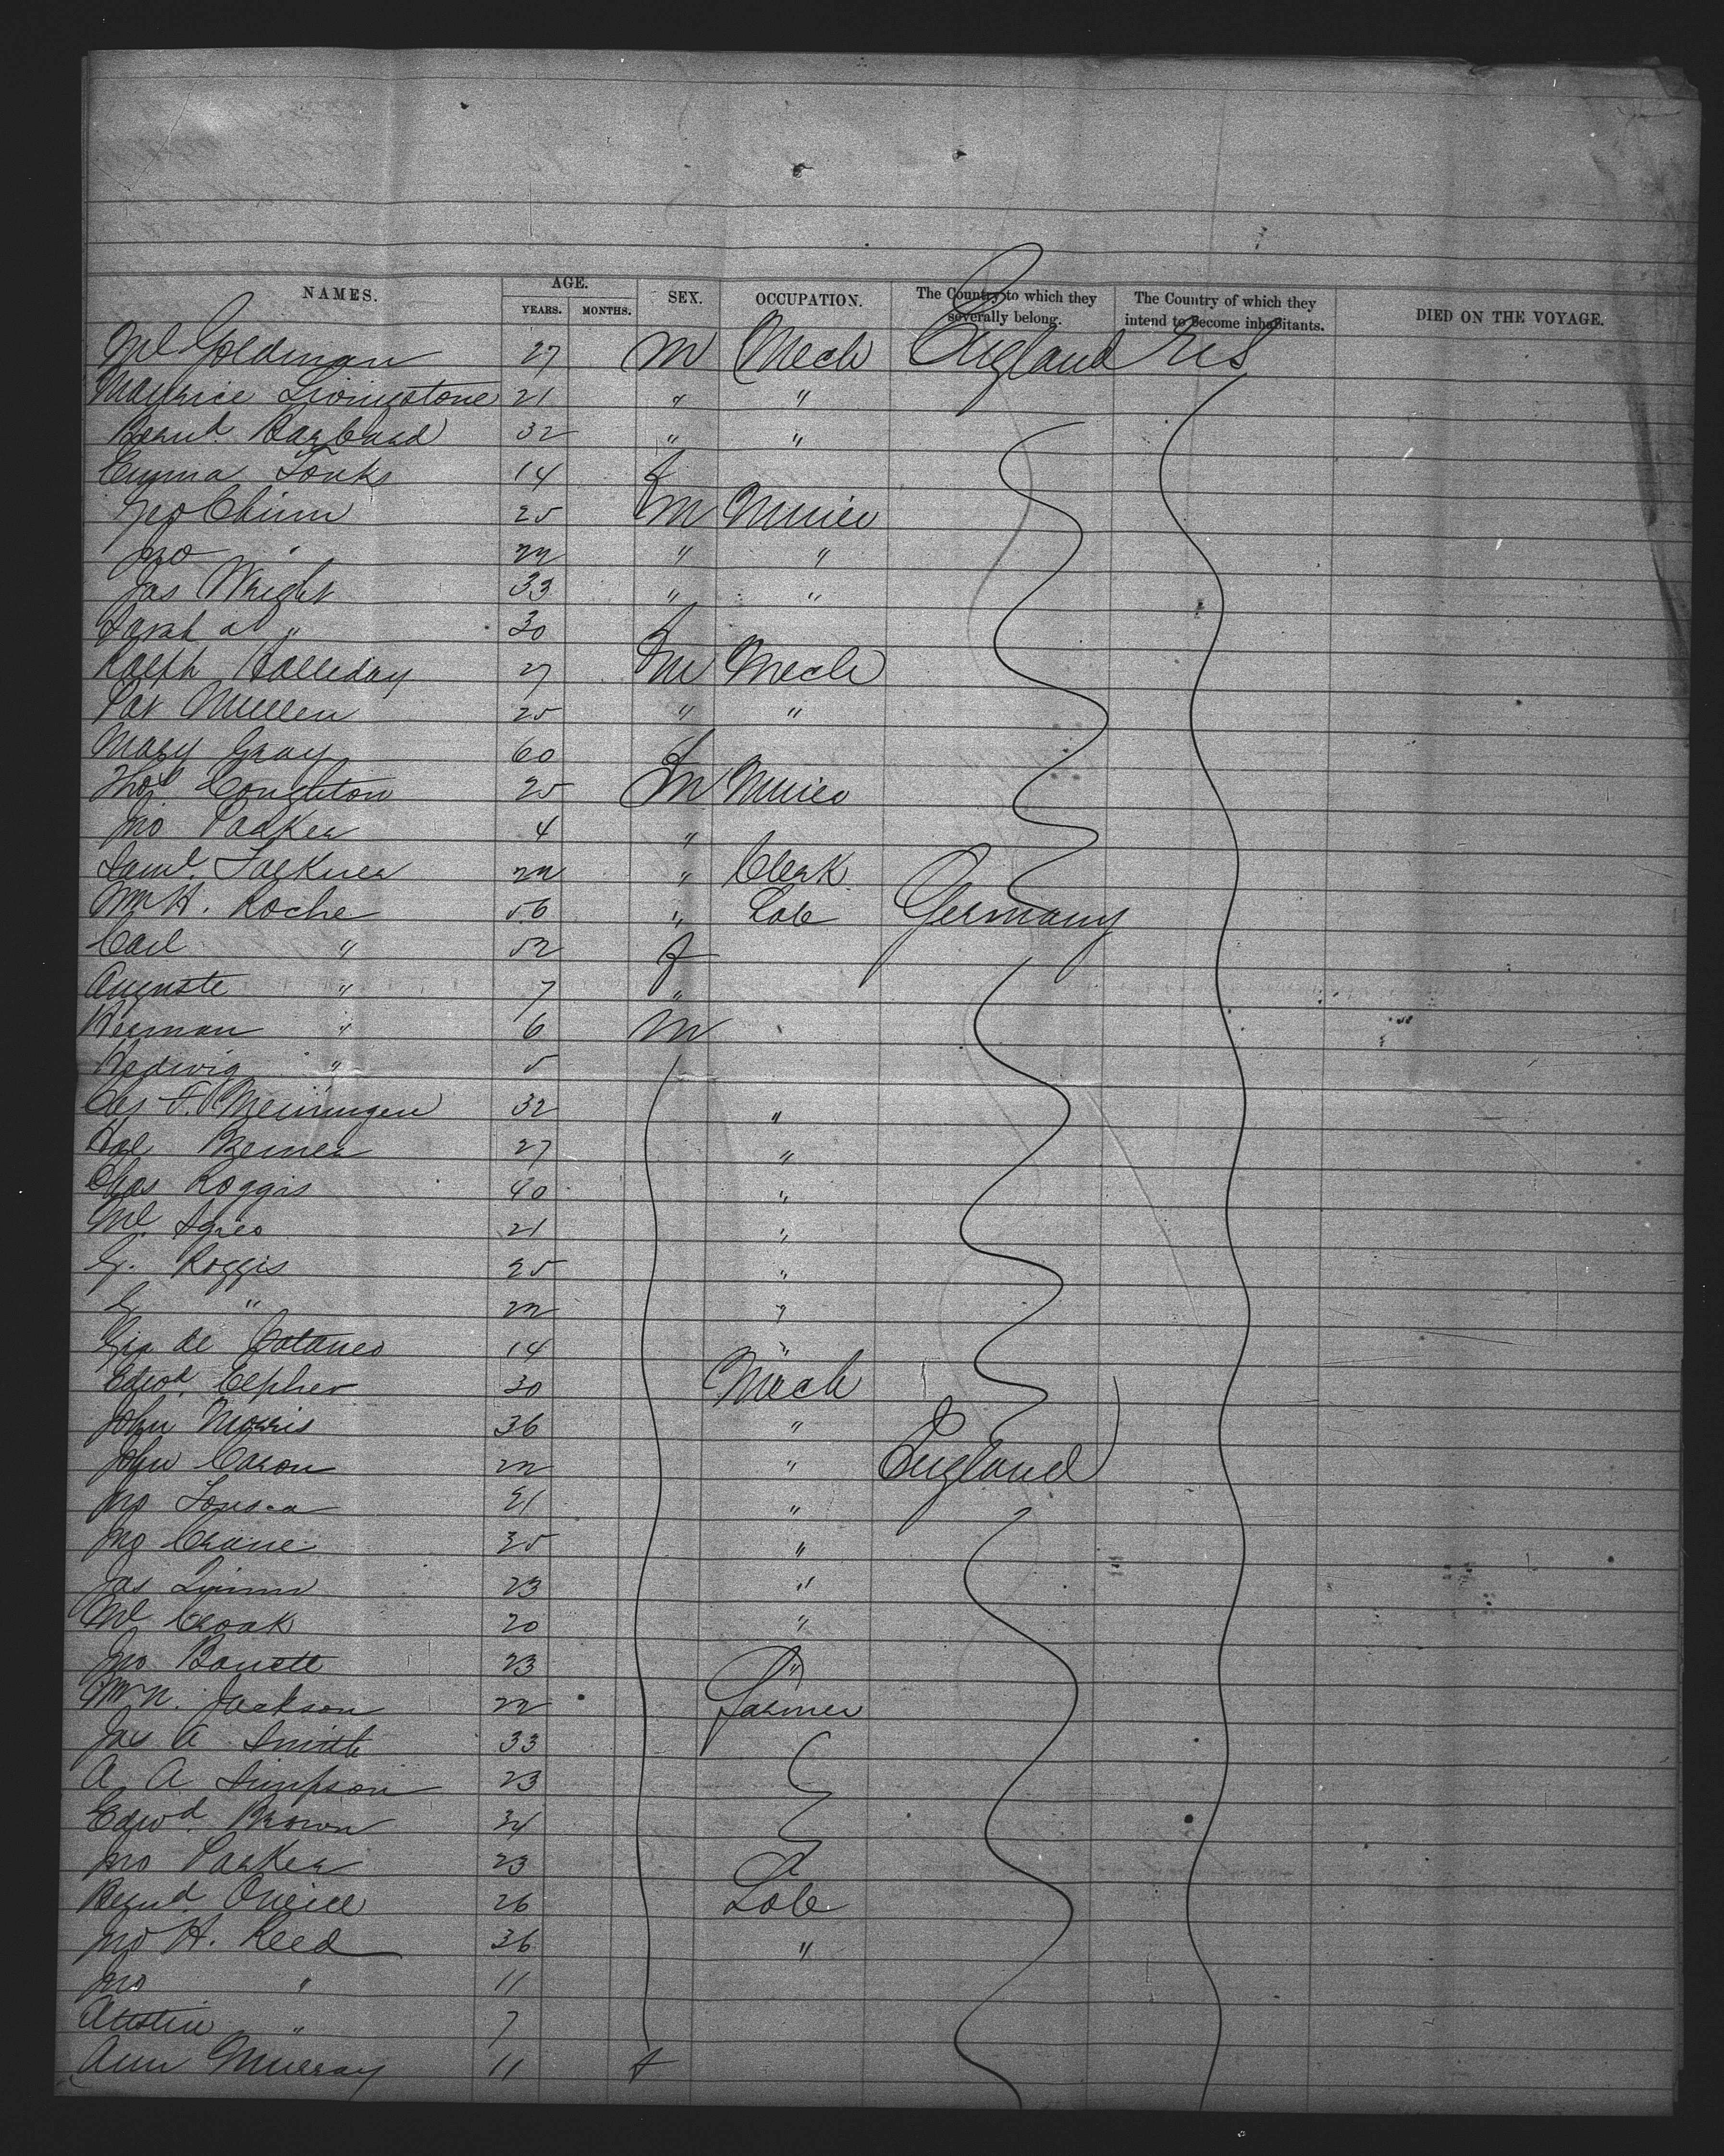 NAMES. AGE. YEARS. MONTHS. SEX. OCCUPATION. The Country to which they severally belong. The Country of which they intend to become inhabitants. DIED ON THE VOYAGE.
Ml Goldman 27 m Mech England US
Maurice Livingstone 21 " "
Bernd. Barbard 32 " "
Emma Tonks 14 f
Geo Chinn 25 m Miner
Jno " 22 " "
Jas Wright 33 " "
Sarah a " 30 f
Ralph Halliday 27 m Mech
Pat Mullen 25 " "
Mary Gray 60 f
Thos Coughton 25 m Miner
Jno Parker 4 "
Saml. Falkner 22 " Clerk
Wm H. Roche 56 " Lab Germany
Carl " 52 f
Auguste " 7 "
Herman " 6 m
Hedwig " 5
Chs F. Meiningen 32 "
Bernier 27 "
Chas Roggis 40 "
Ml 21 "
G. Roggis 25 "
G " 22 "
de 14 "
Edwd. 30 Mech
John Morris 36 "
John Caron 22 " England
Jno 21 "
Jno Crane 35 "
Jas Quinn 23 "
Ml Croak 20 "
Jno Barrett 23 "
Wm N. Jackson 22 Farmer
Jas A Smith 33
A. A Simpson 23
Edwd. Brown 34
Jno Parker 23
Bernd. Oneill 26 Lab
Jno H. Reed 36 "
Jno " 11
Austin " 7
Ann Murray 11 f